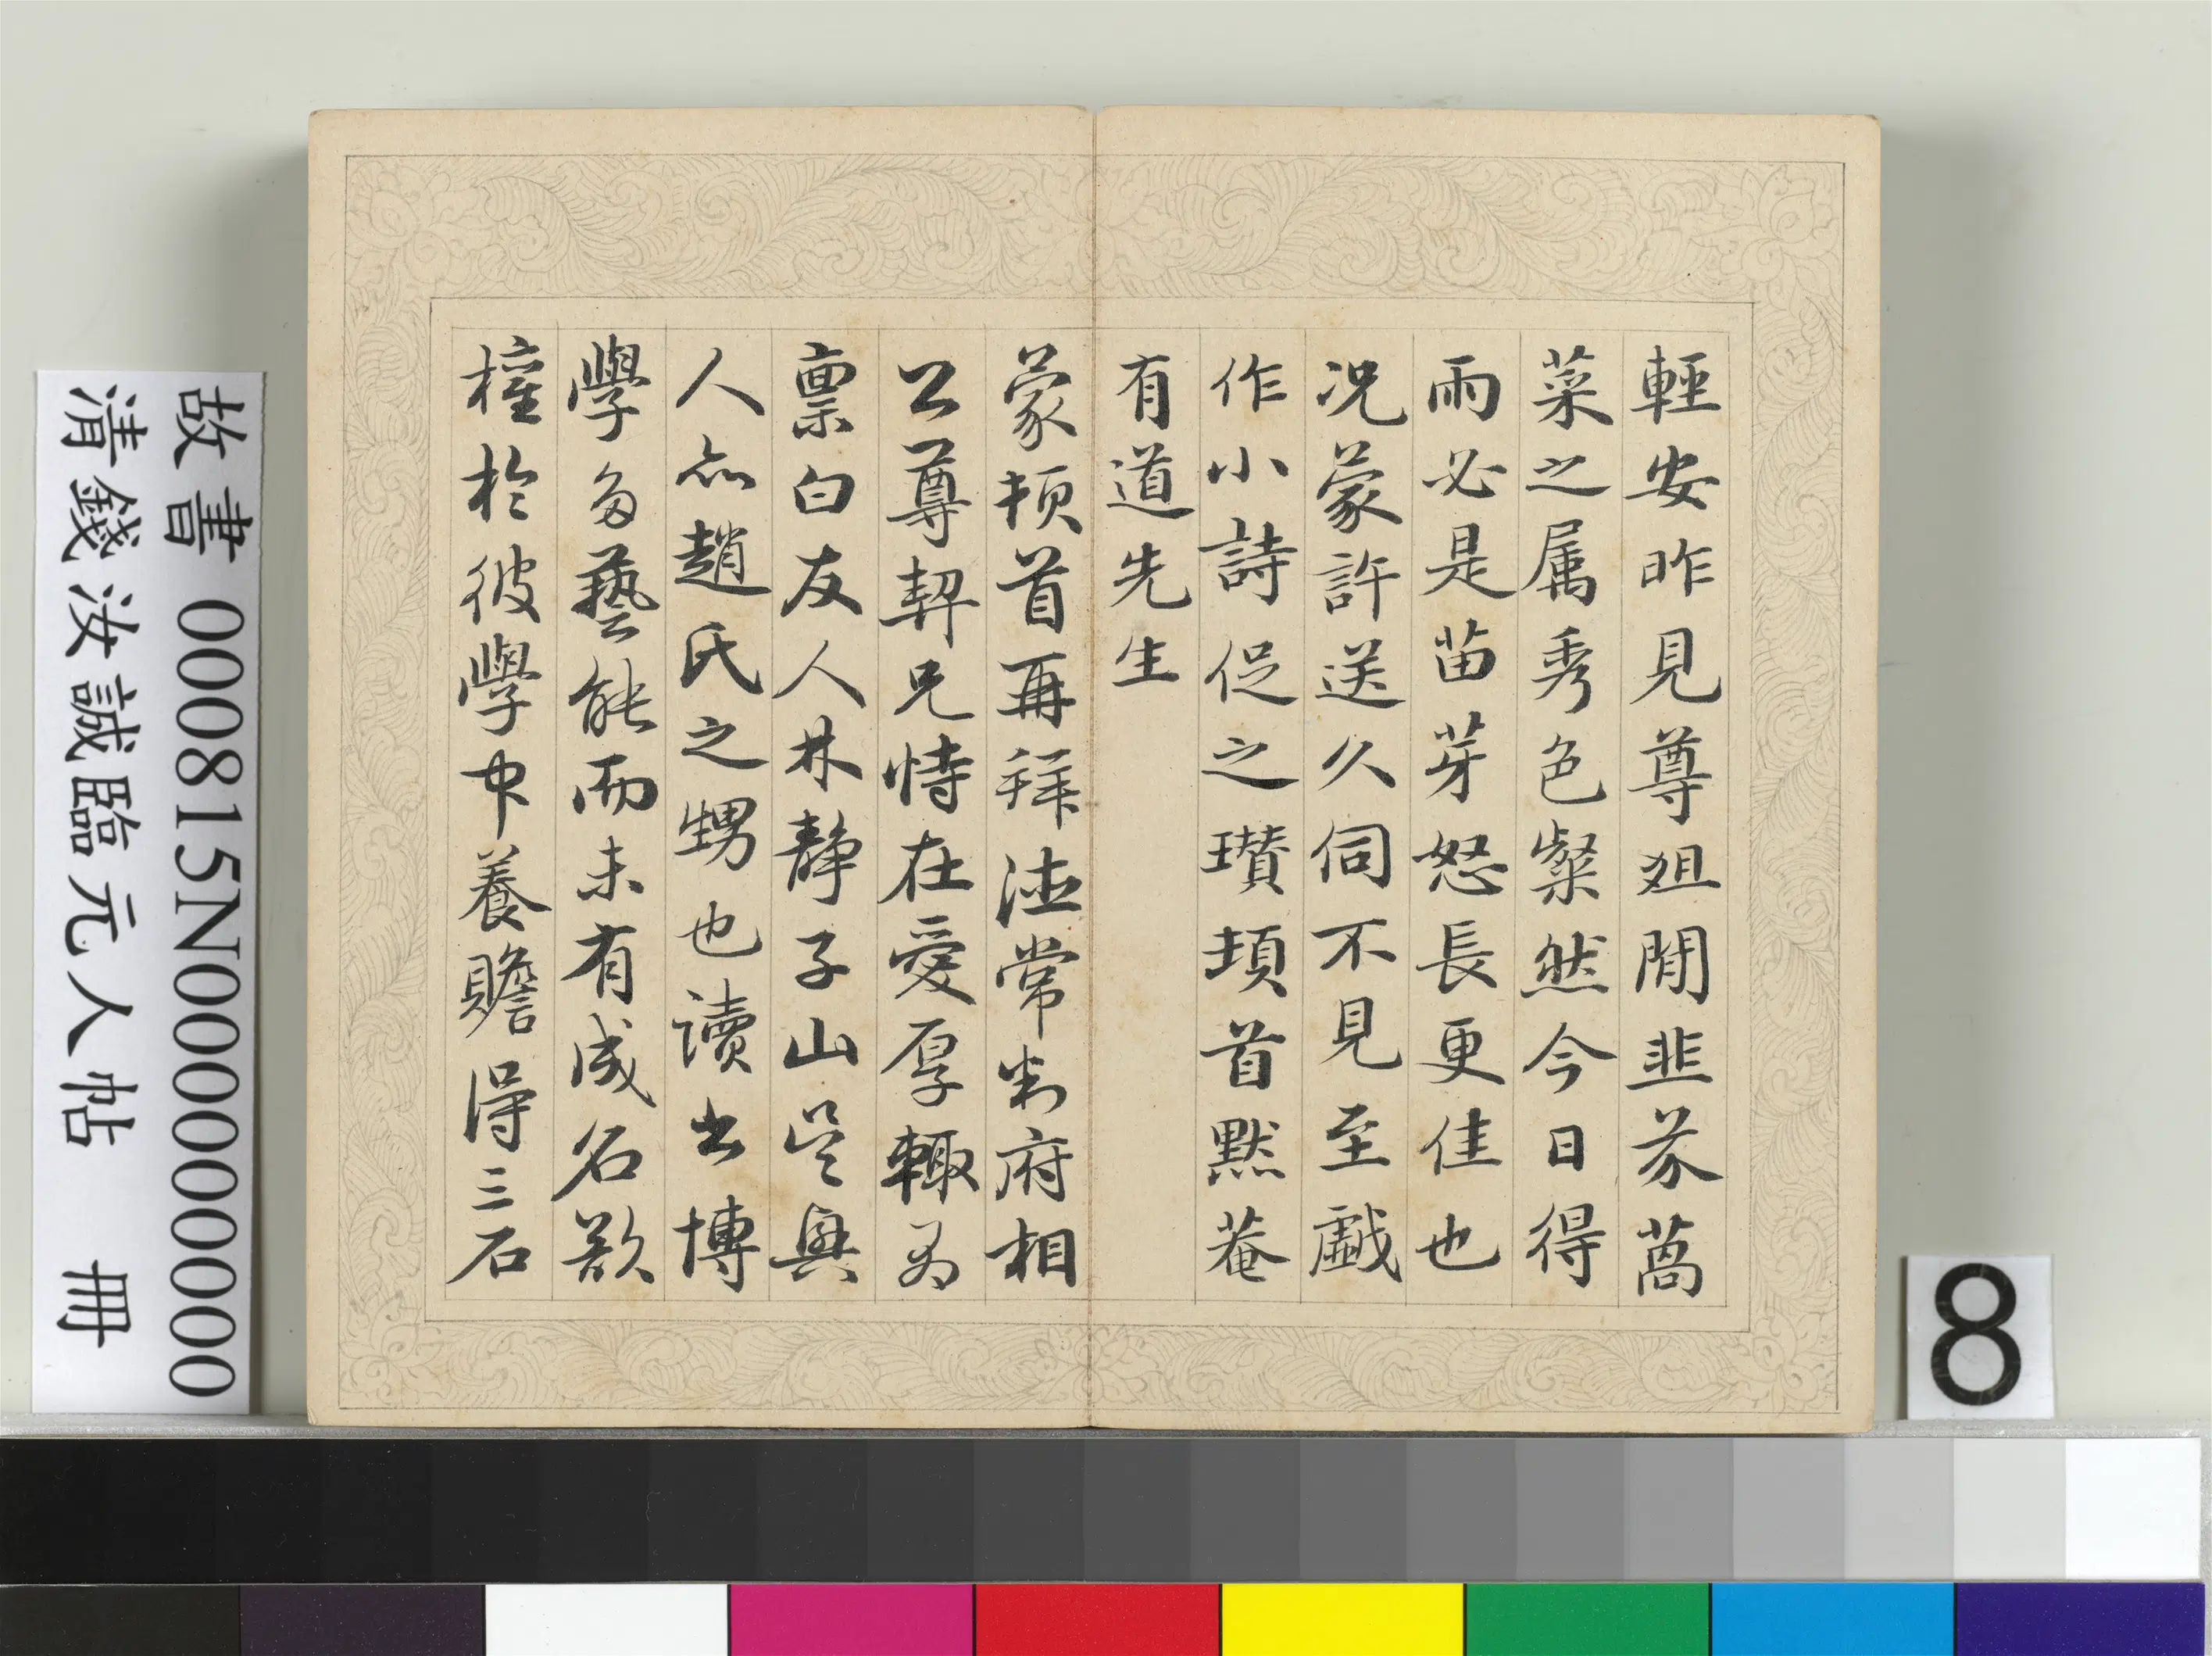 輕安昨見尊俎閒韭芥萵
菜之属秀色粲然今日得
雨必是苗芽怒長更佳也
况蒙許送久伺不見至戲
作小詩促之瓚頓首黙菴
有道先生
蒙頓首再拜法常判府相
公尊契兄恃在愛厚輙爲
禀白友人林静子山吴興
人亦趙氏之甥也讀書博
學多藝能而未有成名欲
權於彼學中養贍得三石
故書 000815N000000000
清錢汝誠臨元人帖 冊
8